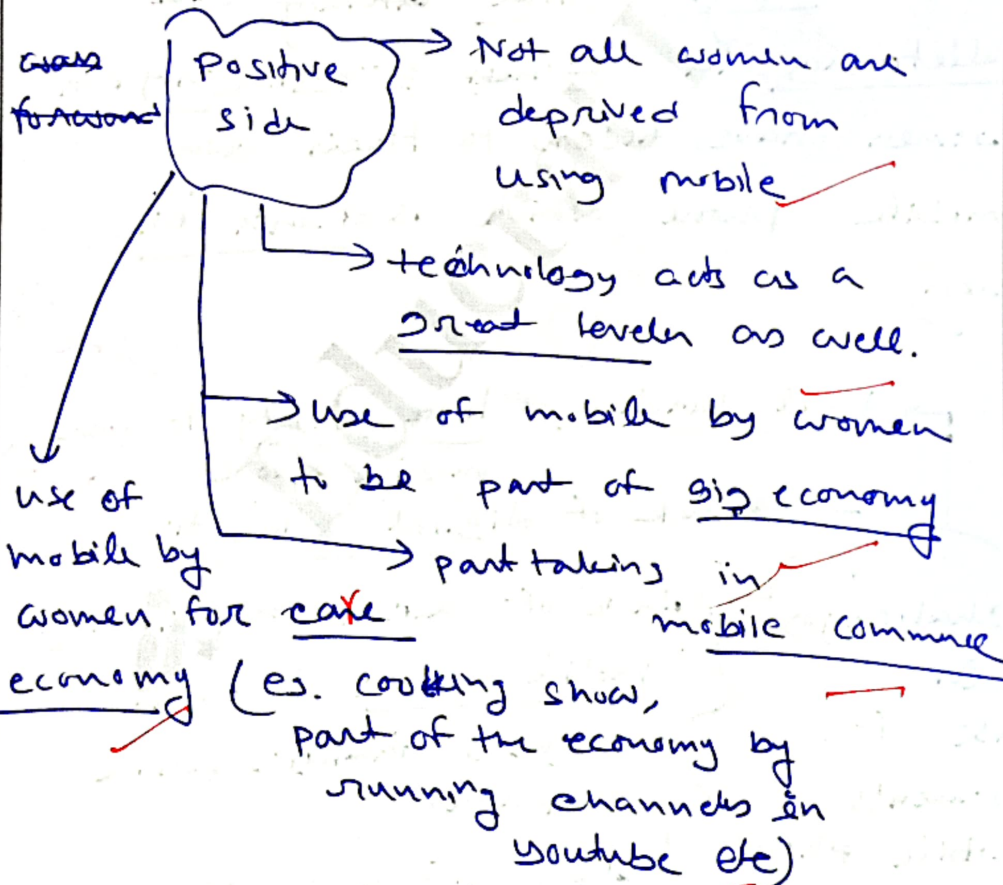 Positive
side
Not all women are
deprived from
using mobile
technology acts as a
great leveler as well.
use of mobile by women
to be part of gig economy
part taking in
mobile commerce
use of
mobile by
women for care
economy (eg. cooking show,
part of the economy by
running channels in
youtube etc)